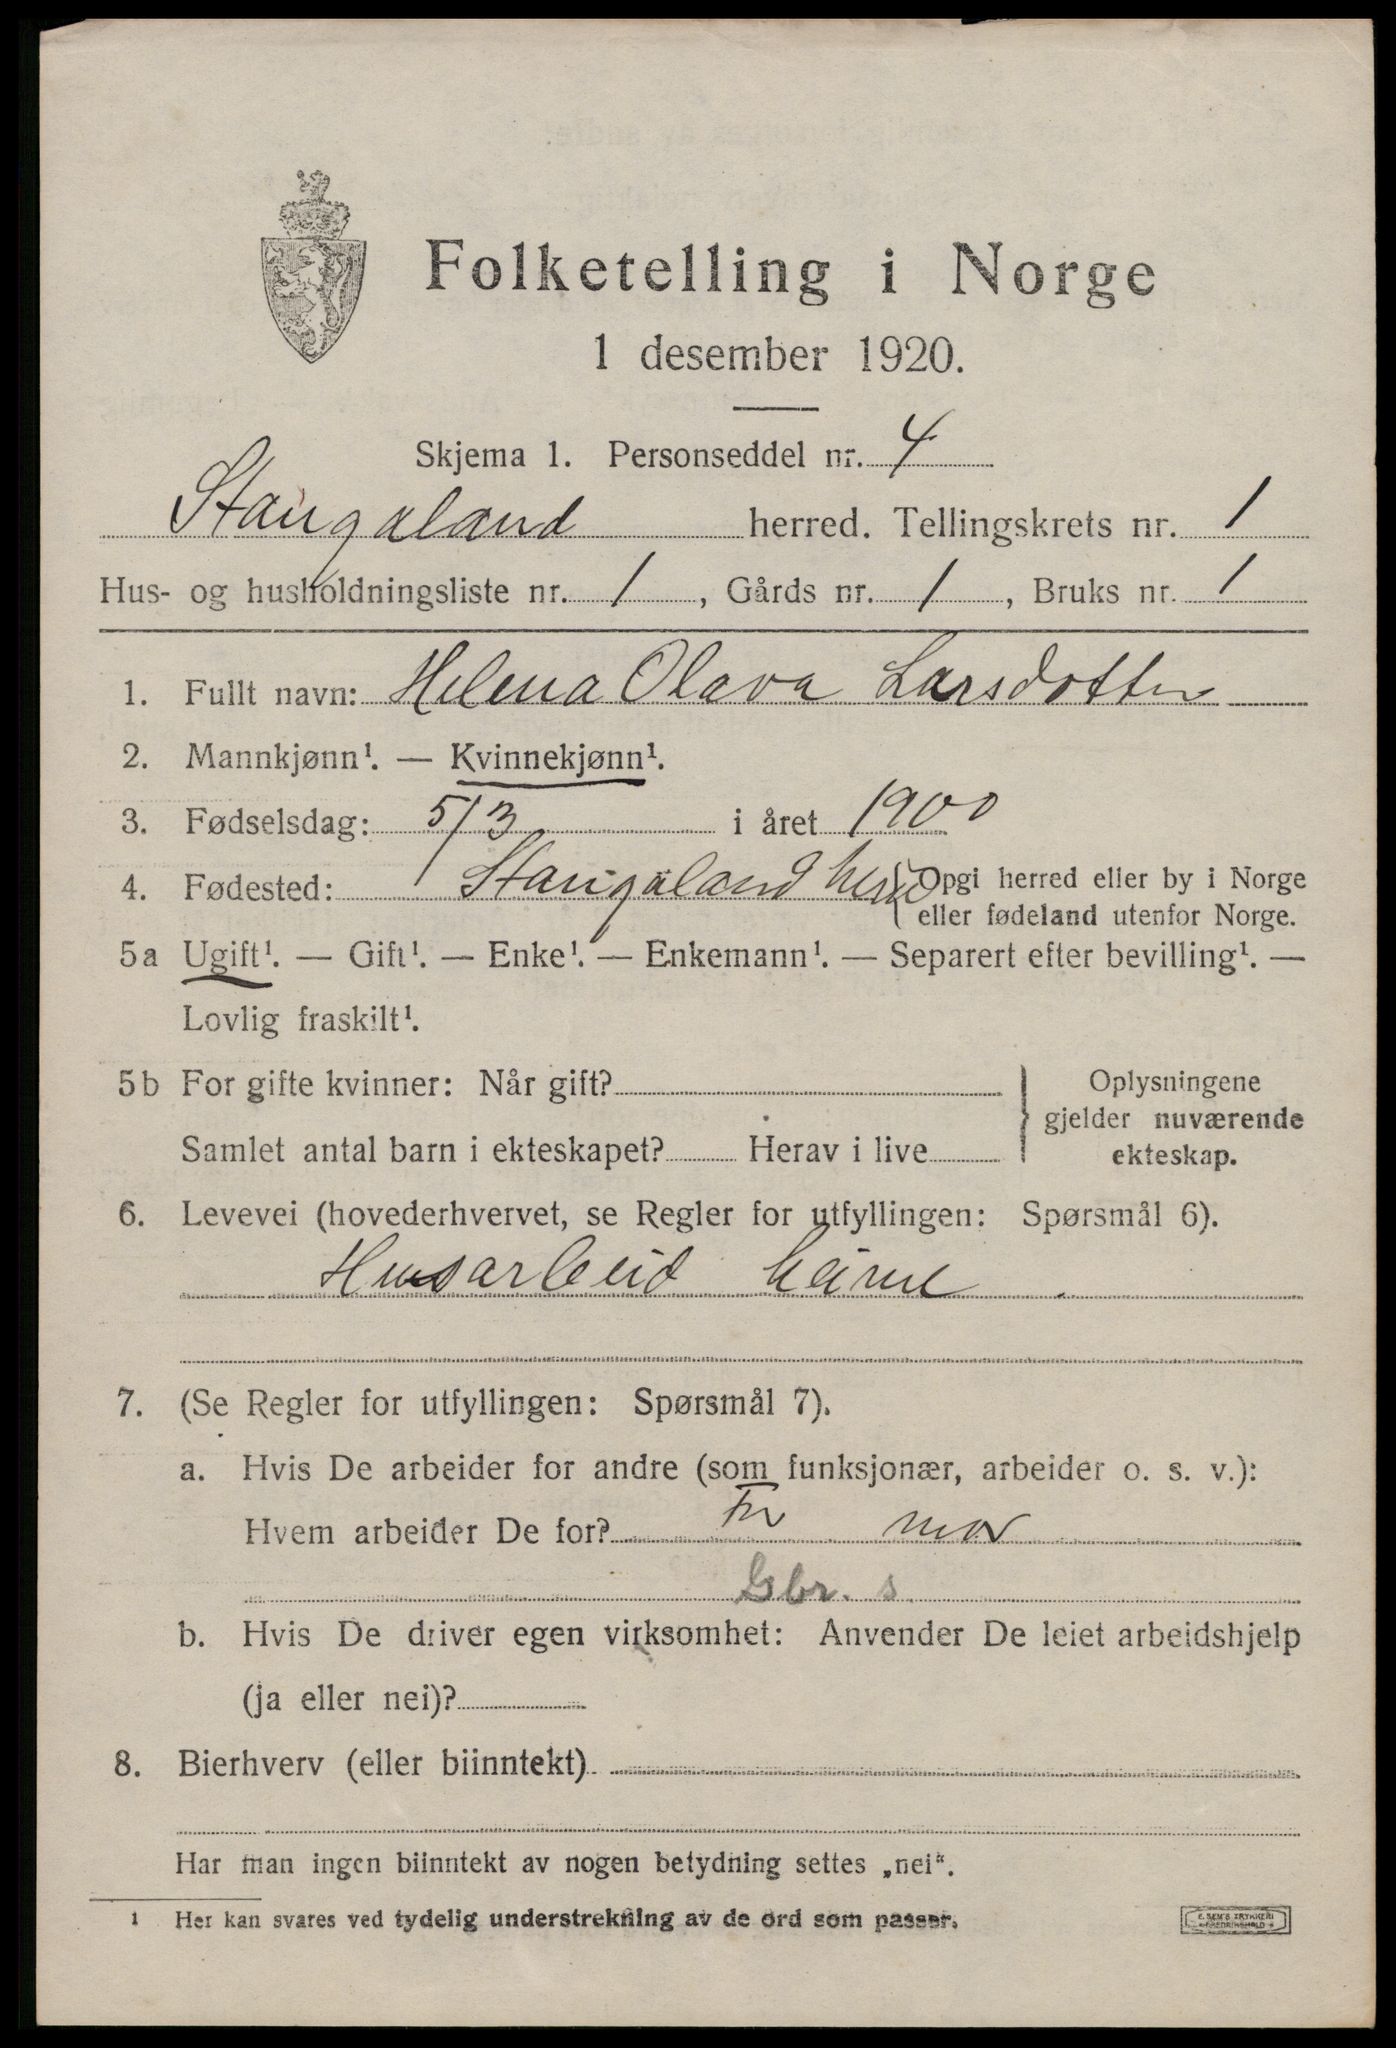 Folketelling i Norge
1 desember 1920.
Skjema 1. Personseddel nr. 4
Stangaland herred. Tellingskrets nr. 1
Hus- og husholdningsliste nr. 1, Gårds nr. 1, Bruks nr. 1
1. Fullt navn: Helena Olava Larsdotter
2. Mannkjønn¹. — Kvinnekjønn¹.
3. Fødselsdag: 5/3 i året 1900
4. Fødested: Stangaland herre { Opgi herred eller by i Norge
eller fødeland utenfor Norge.
5a Ugift¹. — Gift¹. — Enke¹. — Enkemann¹. — Separert efter bevilling¹. —
Lovlig fraskilt¹.
5b For gifte kvinner: Når gift?
Samlet antal barn i ekteskapet? Herav i live
} Oplysningene
gjelder nuværende
ekteskap.
6. Levevei (hovederhvervet, se Regler for utfyllingen: Spørsmål 6).
Husarbeid heime
7. (Se Regler for utfyllingen: Spørsmål 7).
a. Hvis De arbeider for andre (som funksjonær, arbeider o. s. v.):
Hvem arbeider De for? For mor
Gbr. s
b. Hvis De driver egen virksomhet: Anvender De leiet arbeidshjelp
(ja eller nei)?
8. Bierhverv (eller biinntekt)
Har man ingen biinntekt av nogen betydning settes „nei“.
1 Her kan svares ved tydelig understrekning av de ord som passer.
E. SEM'S TRYKKERI
FREDRIKSHALD